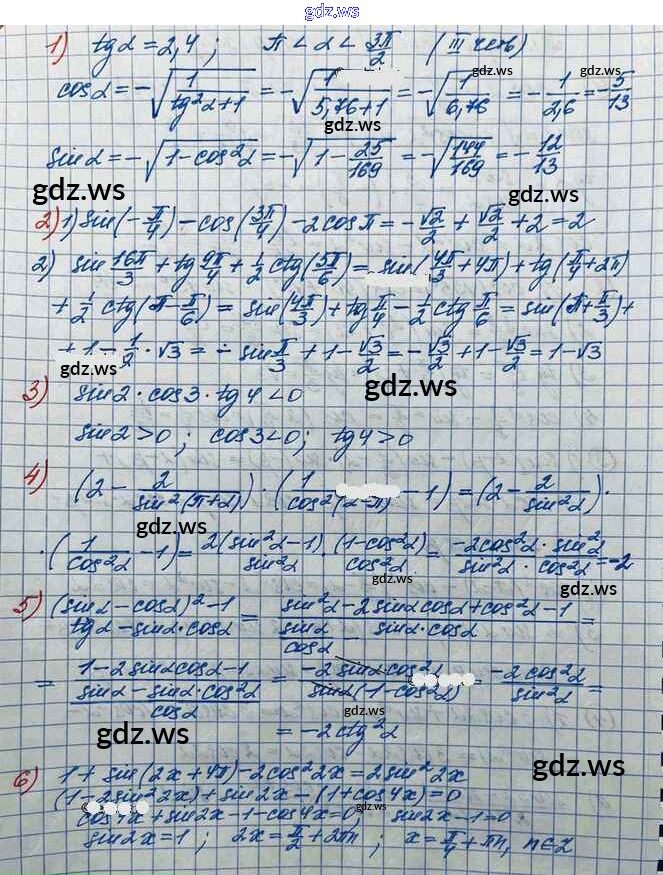 gdz.ws
1) tgα = 2,4 ; π < α < 3π/2 (III четв)
cosα = -√(1/(tg²α+1)) = -√(1/(5,76+1)) = -√(1/6,76) = -1/2,6 = -5/13
gdz.ws
gdz.ws
sinα = -√(1-cos²α) = -√(1-25/169) = -√(144/169) = -12/13
gdz.ws
gdz.ws
2) 1) sin(-π/4) - cos(3π/4) - 2cosπ = -√2/2 + √2/2 + 2 = 2
2) sin 16π/3 + tg 9π/4 + 1/2 ctg(5π/6) = sin(4π/3 + 4π) + tg(π/4 + 2π)
gdz.ws
+ 1/2 ctg(π - π/6) = sin(4π/3) + tg π/4 - 1/2 ctg π/6 = sin(π + π/3) +
+ 1 - 1/2 · √3 = - sin π/3 + 1 - √3/2 = -√3/2 + 1 - √3/2 = 1 - √3
gdz.ws
gdz.ws
3) sin2 · cos3 · tg4 < 0
sin2 > 0 ; cos3 < 0 ; tg4 > 0
4) (2 - 2/sin²(π+α)) · (1/cos²(α-π) - 1) = (2 - 2/sin²α) ·
gdz.ws
· (1/cos²α - 1) = 2(sin²α - 1)/sin²α · (1-cos²α)/cos²α = -2cos²α · sin²α/sin²α · cos²α = -2
gdz.ws
gdz.ws
5) (sinα - cosα)² - 1/tgα - sinα·cosα = sin²α - 2sinαcosα + cos²α - 1/sinα/cosα - sinα·cosα =
= 1 - 2sinαcosα - 1/sinα - sinα·cos²α/cosα = -2sinαcos²α/sinα(1-cos²α) = -2cos²α/sin²α =
gdz.ws
= -2ctg²α
gdz.ws
gdz.ws
6) 1 + sin(2x + 4π) - 2cos²2x = 2sin²2x
(1 - 2sin²2x) + sin2x - (1 + cos4x) = 0
gdz.ws
cos4x + sin2x - 1 - cos4x = 0 ; sin2x - 1 = 0
sin2x = 1 ; 2x = π/2 + 2πn ; x = π/4 + πn, n∈Z
gdz.ws